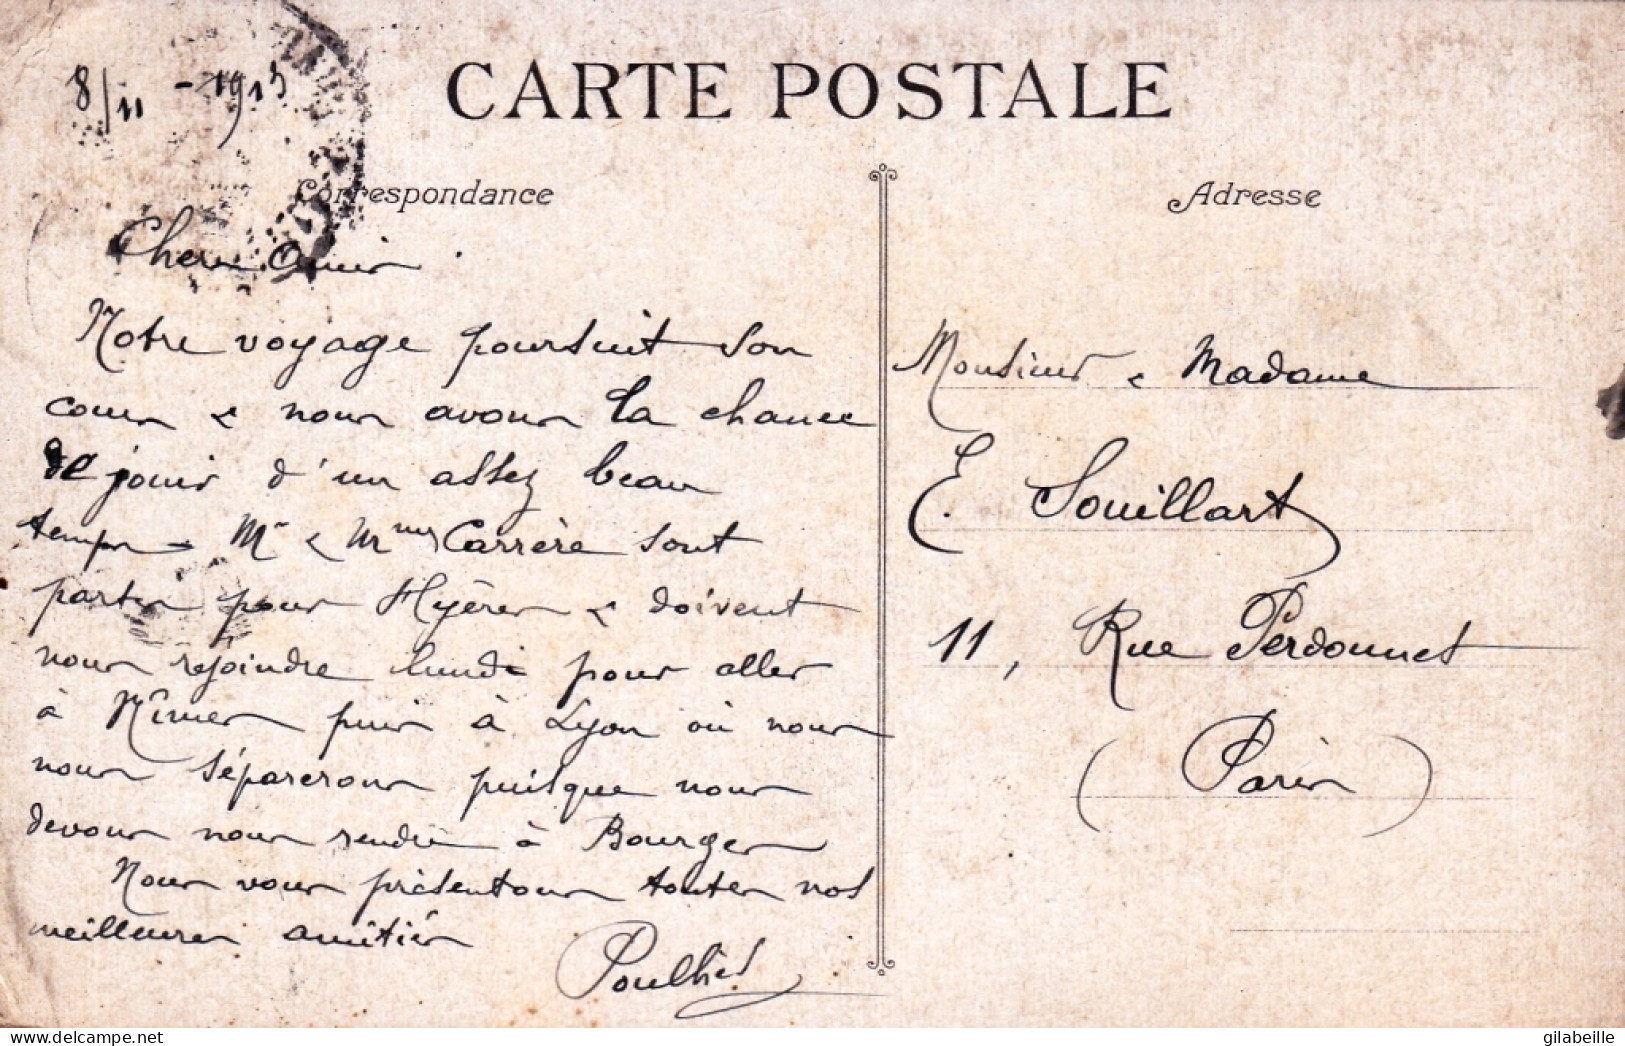 8/11 - 1913
CARTE POSTALE
Correspondance
Adresse
Chers Amis
Notre voyage poursuit son
cours & nous avons la chance
de jouir d'un assez beau
temps - Mr & Mme Carrère sont
partis pour Hyères & doivent
nous rejoindre lundi pour aller
à Nîmes puis à Lyon où nous
nous séparerons puisque nous
devons nous rendre à Bourges
Nous vous présentons toutes nos
meilleures amitiés
Monsieur & Madame
E. Souillart
11, Rue Perdonnet
(Paris)
gilabeille